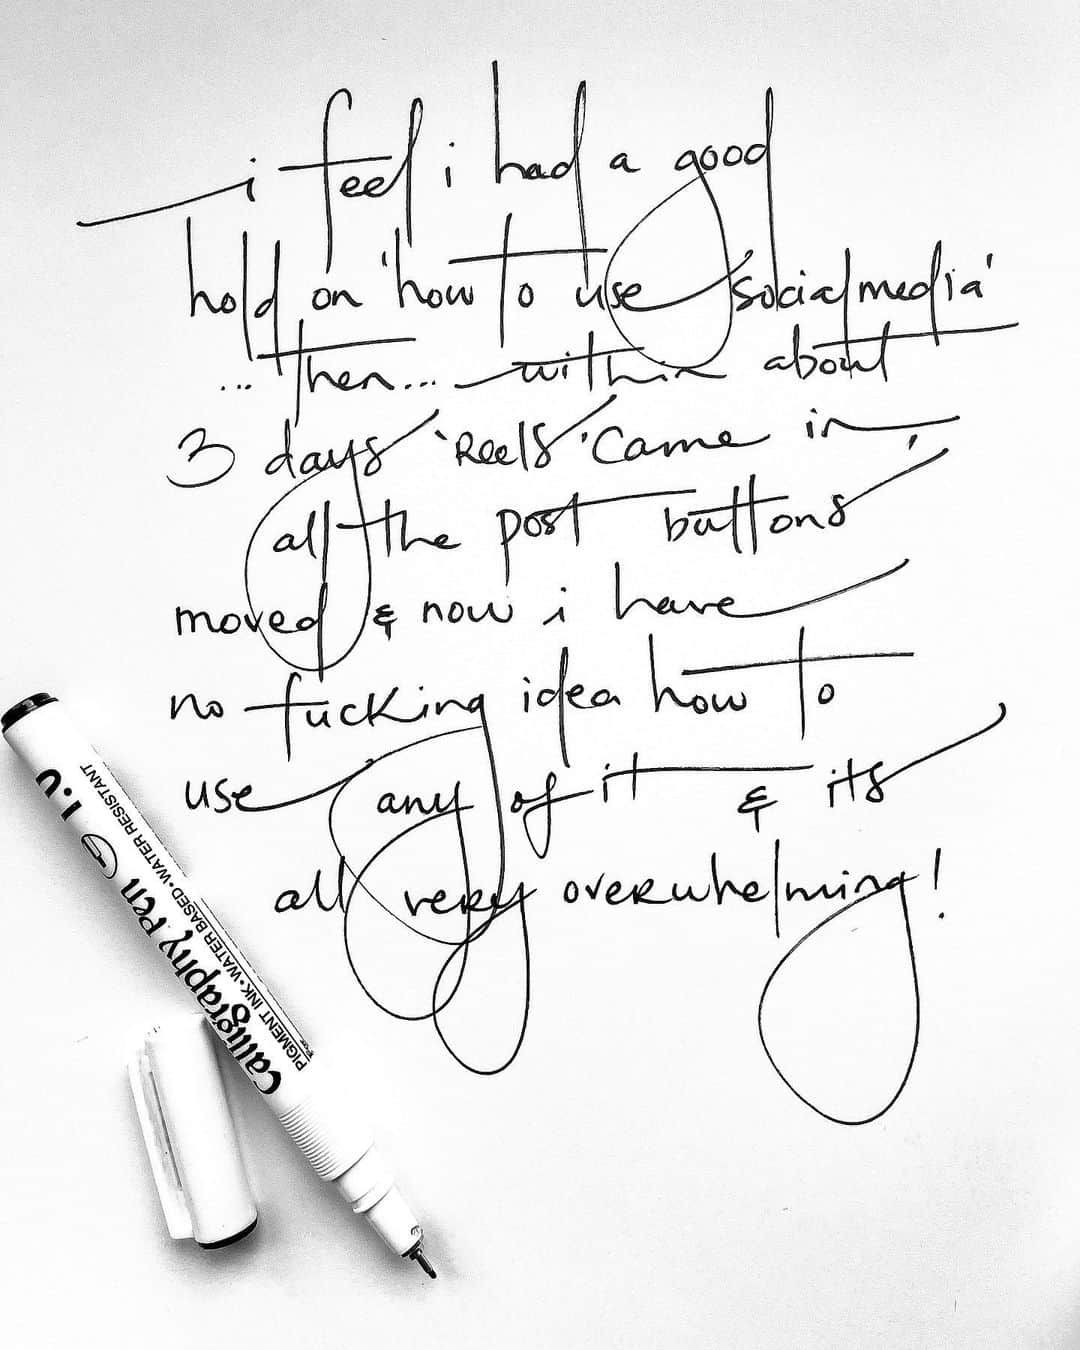 i feel i had a good
hold on 'how to use 'social media'
... then... within about
3 days 'Reels' came in,
all the post buttons
moved & now i have
no fucking idea how to
use any of it & its
all very overwhelming!
1.0
Calligraphy Pen
PIGMENT INK•WATER BASED•WATER RESISTANT